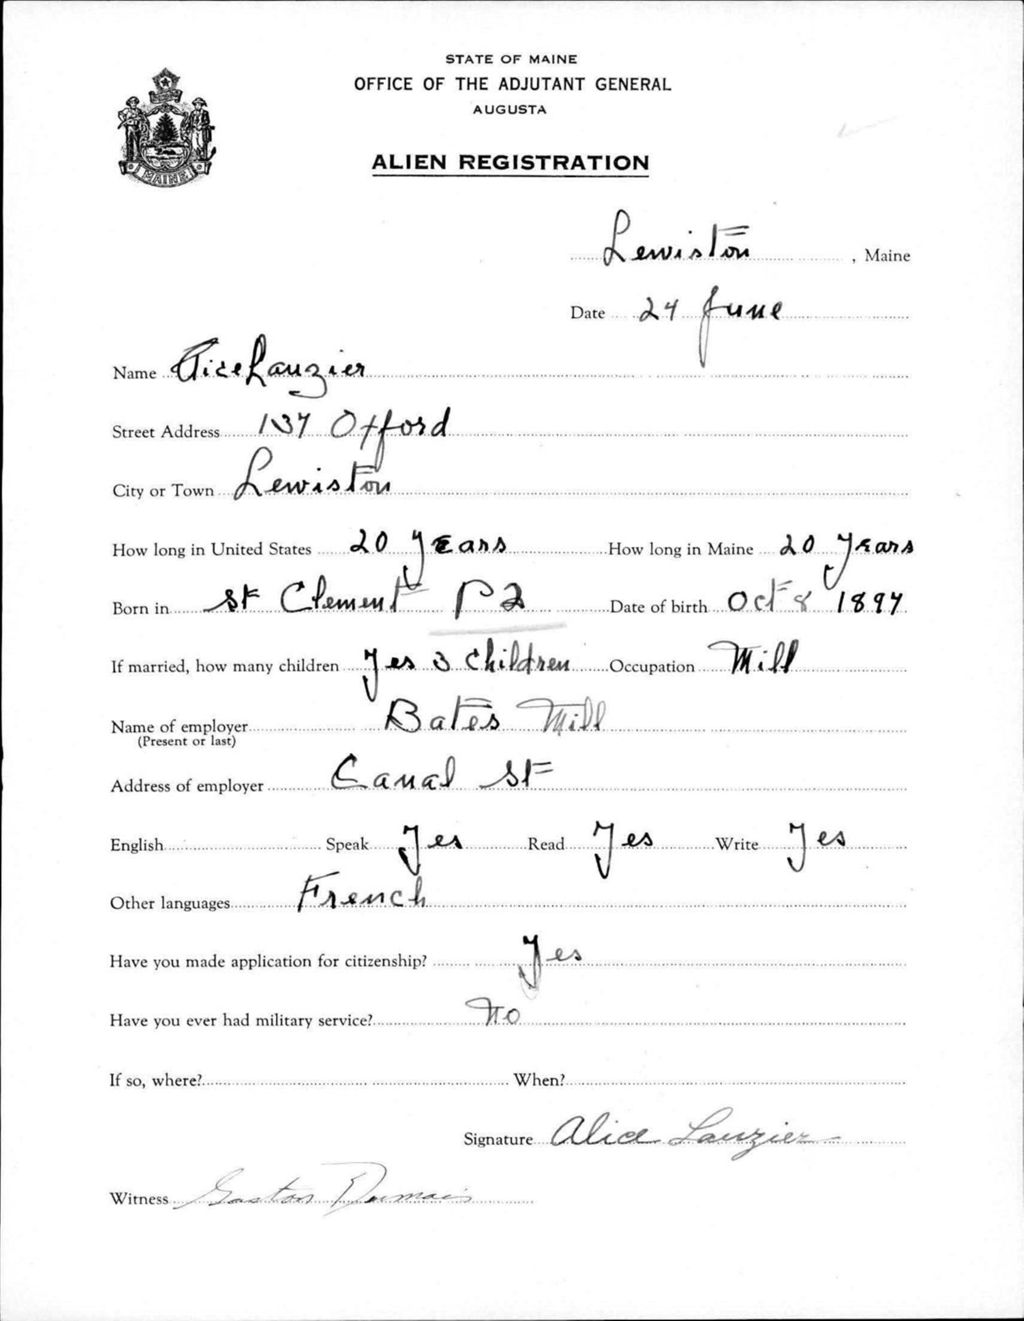 STATE OF MAINE
OFFICE OF THE ADJUTANT GENERAL
AUGUSTA
ALIEN REGISTRATION
MAINE
Lewiston, Maine
Date 24 June
Name Alice Lauzier
Street Address 137 Oxford
City or Town Lewiston
How long in United States 20 Years How long in Maine 20 Years
Born in St Clement P2 Date of birth Oct 8 1897
If married, how many children Yes 3 Children Occupation Mill
Name of employer Bates Mill
(Present or last)
Address of employer Canal St
English Speak Yes Read Yes Write Yes
Other languages French
Have you made application for citizenship? Yes
Have you ever had military service? No
If so, where? When?
Signature Alice Lauzier
Witness Gaston Dumais